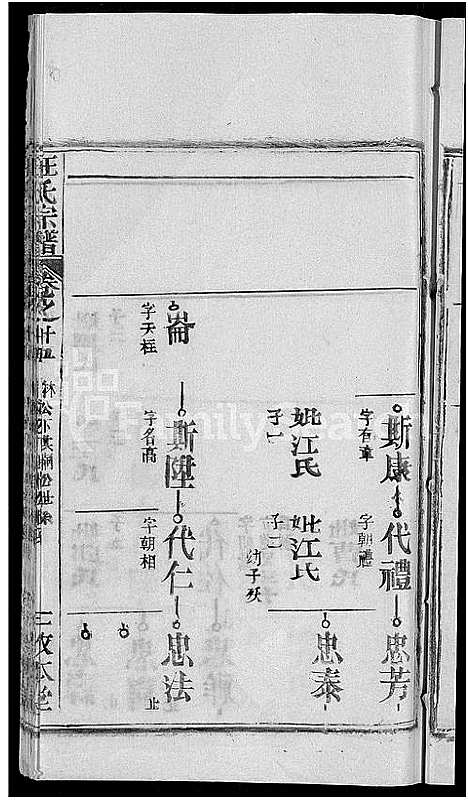 斯康
字有章
妣江氏
子一
代禮
字朝禮
妣江氏
子二
幼子殀
忠芳
忠泰
崙
字天柱
斯陞
字名高
代仁
字朝相
忠法
止
汪氏宗譜
卷之廿五
敦本堂
FamilySearch